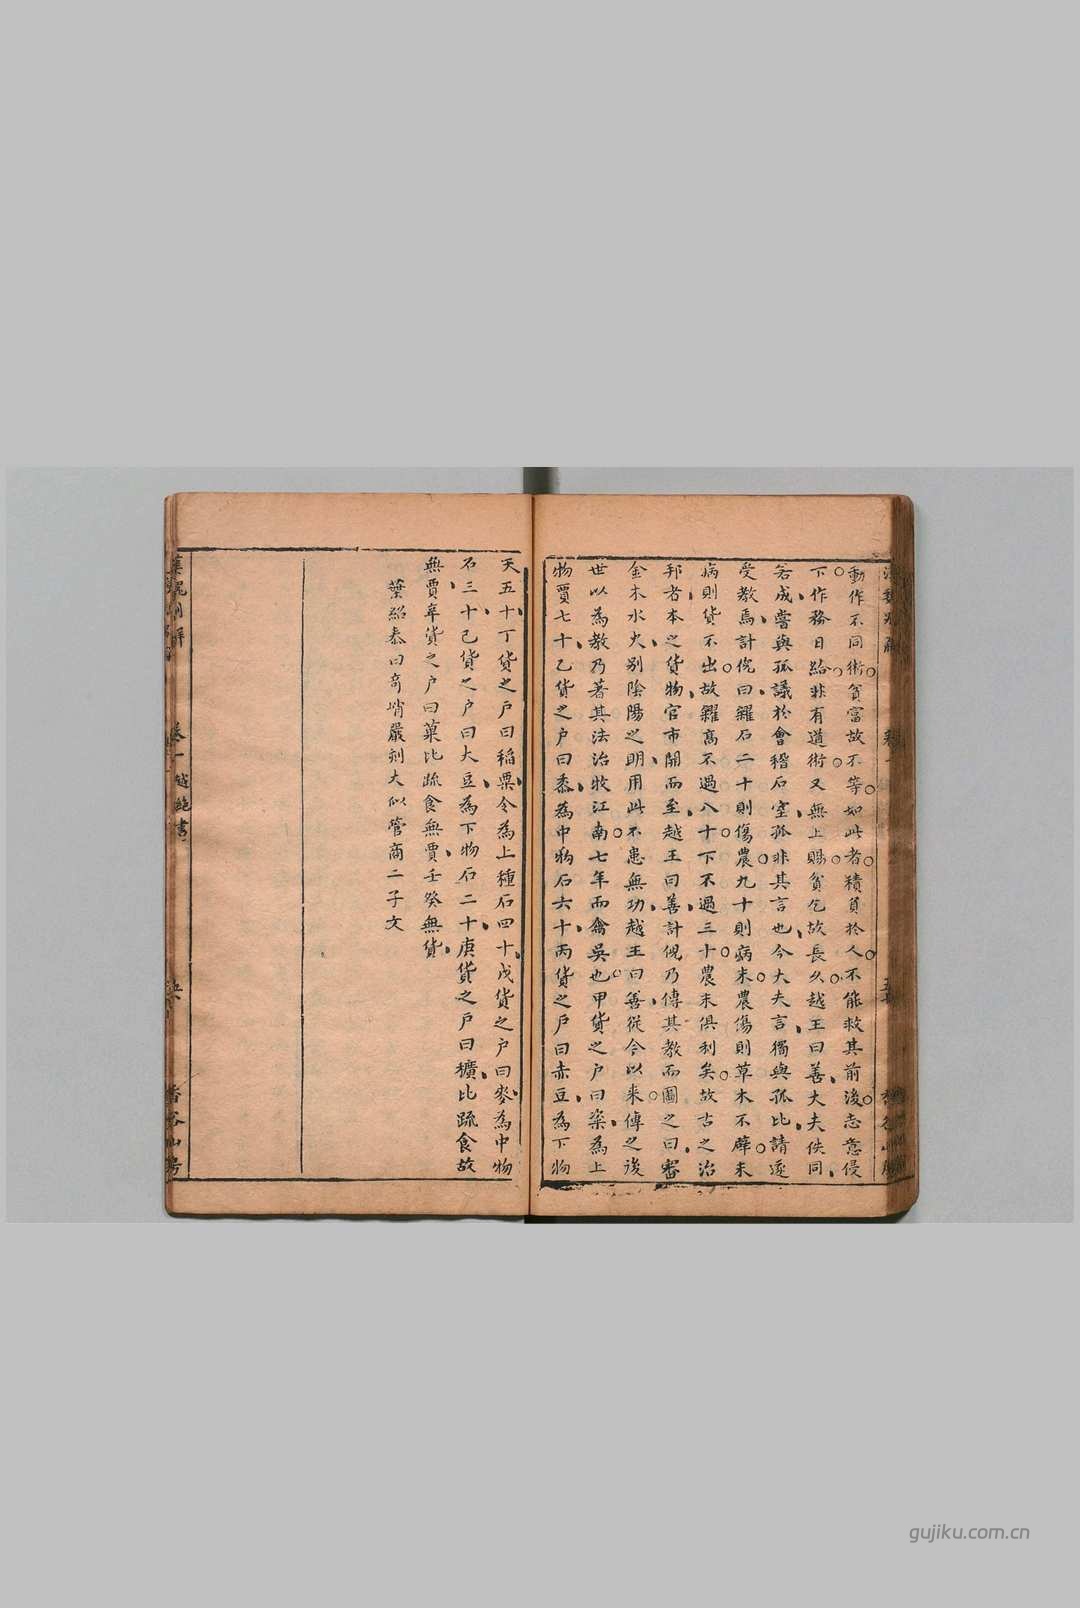 動作不同術貧富故不等如此者積負於人不能救其前後志意侵
下作務日給非有道術又無上賜貧乞故長久越王曰善大夫佚同
若成嘗與孤議於會稽石室孤非其言也今大夫言獨與孤比請遂
受教焉計倪曰糴石二十則傷農九十則病末農傷則草木不辟末
病則貨不出故糴高不過八十下不過三十農末俱利矣故古之治
邦者本之貨物官市開而至越王曰善計倪乃傳其教而圖之曰審
金木水火別陰陽之明用此不患無功越王曰善從今以來傳之後
世以為教乃著其法治牧江南七年而禽吳也甲貨之户曰粢為上
物賈七十乙貨之户曰黍為中物石六十丙貨之户曰赤豆為下物
天五十丁貨之户曰稻粟令為上種石四十戊貨之户曰麥為中物
石三十己貨之户曰大豆為下物石二十庚貨之户曰穬比蔬食故
無賈辛貨之户曰菓比蔬食無賈壬癸無貨
葉紹泰曰奇峭嚴刻大似管商二子文
卷一 越絶書
gujiku.com.cn